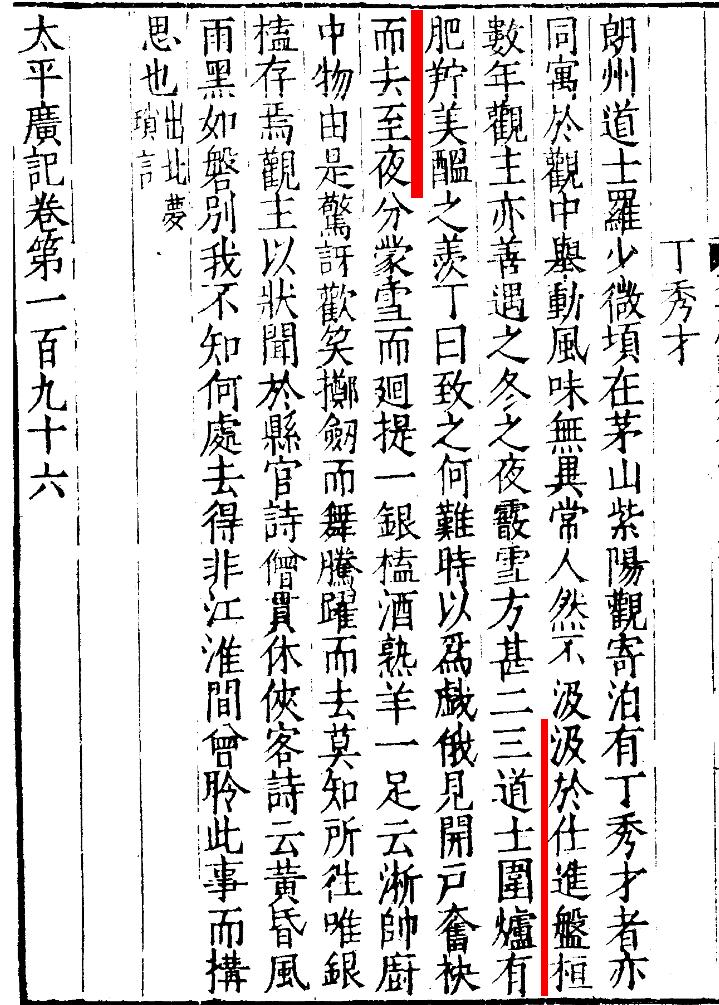 丁秀才
朗州道士羅少微頃在茅山紫陽觀寄泊有丁秀才者亦
同寓於觀中舉動風味無異常人然不汲汲於仕進盤桓
數年觀主亦善遇之冬之夜霰雪方甚二三道士圍爐有
肥羜美醞之羨丁曰致之何難時以爲戱俄見開戸奮袂
而去至夜分蒙雪而廻提一銀榼酒熟羊一足云淅帥廚
中物由是驚訝歡笑擲劒而舞騰躍而去莫知所徃唯銀
榼存焉觀主以狀聞於縣官詩僧貫休俠客詩云黃昏風
雨黑如磐别我不知何處去得非江淮間曾聆此事而搆
思也出北夢
瑣言
太平廣記卷第一百九十六